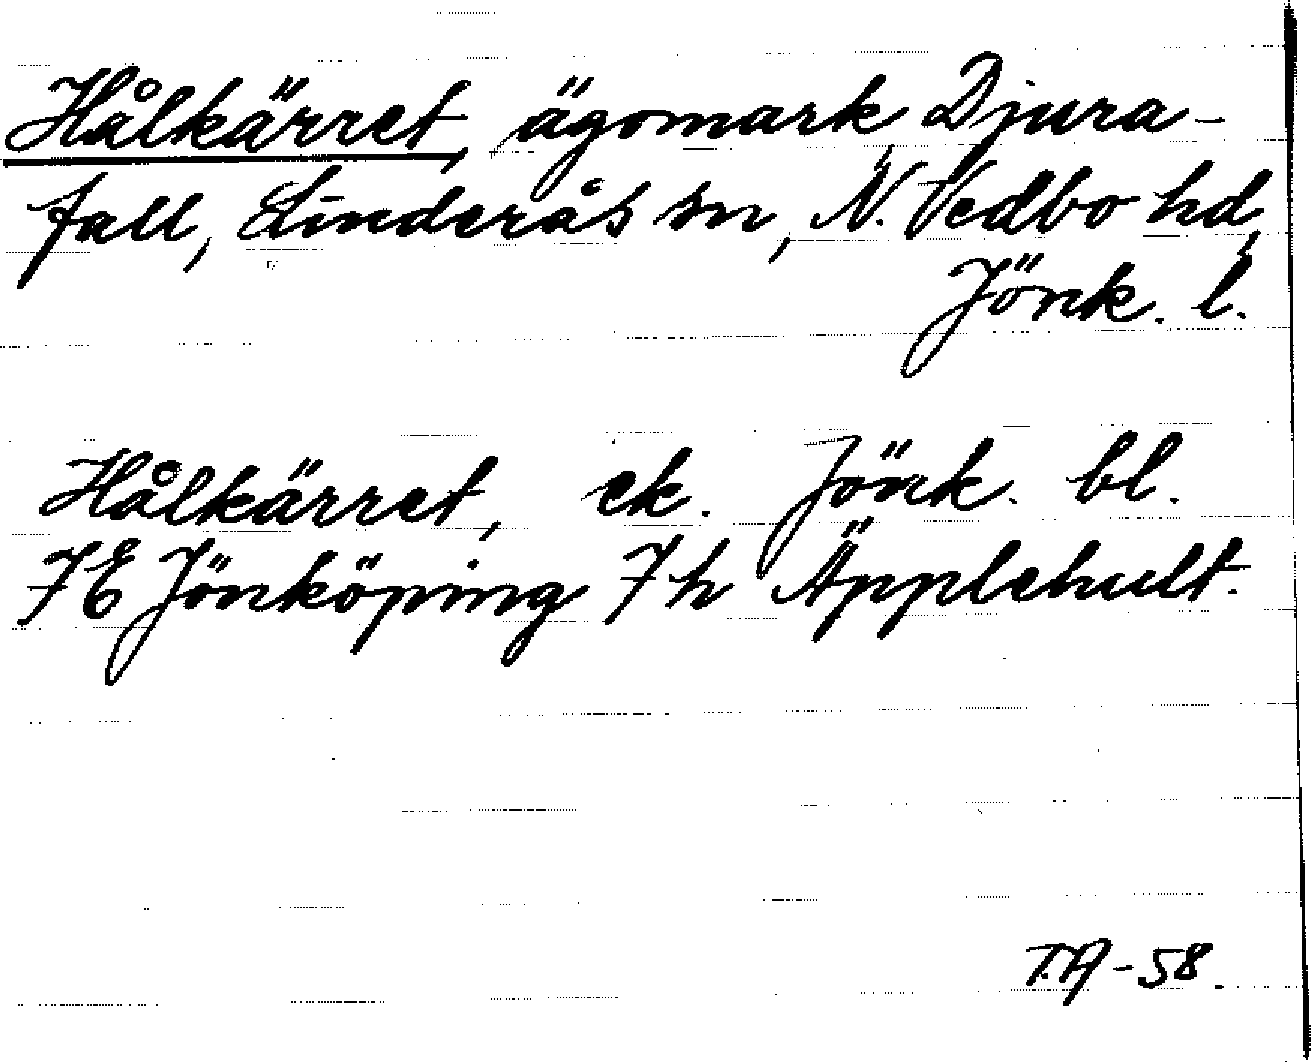 Hålkärret, ägomark Djura-
fall, Linderås sn, N. Vedbo hd,
Jönk. l.
Hålkärret, ek. Jönk. bl.
7E Jönköping 7h Äpplehult.
T.A-58.